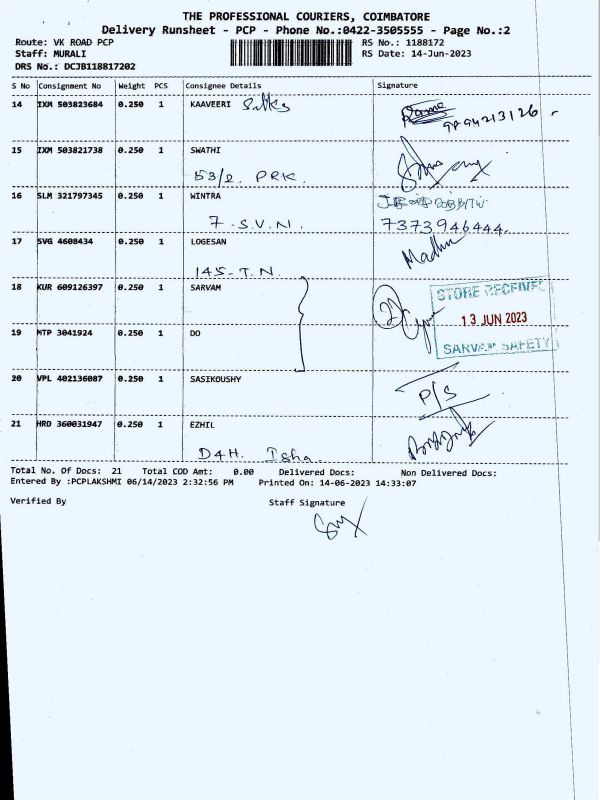 THE PROFESSIONAL COURIERS, COIMBATORE
Delivery Runsheet - PCP - Phone No.:0422-3505555 - Page No.:2
Route: VK ROAD PCP RS No.: 1188172
Staff: MURALI RS Date: 14-Jun-2023
DRS No.: DCJB118817202
S No Consignment No Weight PCS Consignee Details Signature
14 IXM 503823684 0.250 1 KAAVEERI Silks
9894213126
15 IXM 503821738 0.250 1 SWATHI
53/2 PRK.
16 SLM 321797345 0.250 1 WINTRA
7 - S.V.N. 7373946444
17 SVG 4608434 0.250 1 LOGESAN Madhu
145-T.N.
18 KUR 609126397 0.250 1 SARVAM STORE RECEIVED
13 JUN 2023
19 MTP 3041924 0.250 1 DO
SARVAM SAFETY
20 VPL 402136087 0.250 1 SASIKOUSHY
P/S
21 HRD 360031947 0.250 1 EZHIL
D4H. Isha
Total No. Of Docs: 21 Total COD Amt: 0.00 Delivered Docs: Non Delivered Docs:
Entered By :PCPLAKSHMI 06/14/2023 2:32:56 PM Printed On: 14-06-2023 14:33:07
Verified By Staff Signature